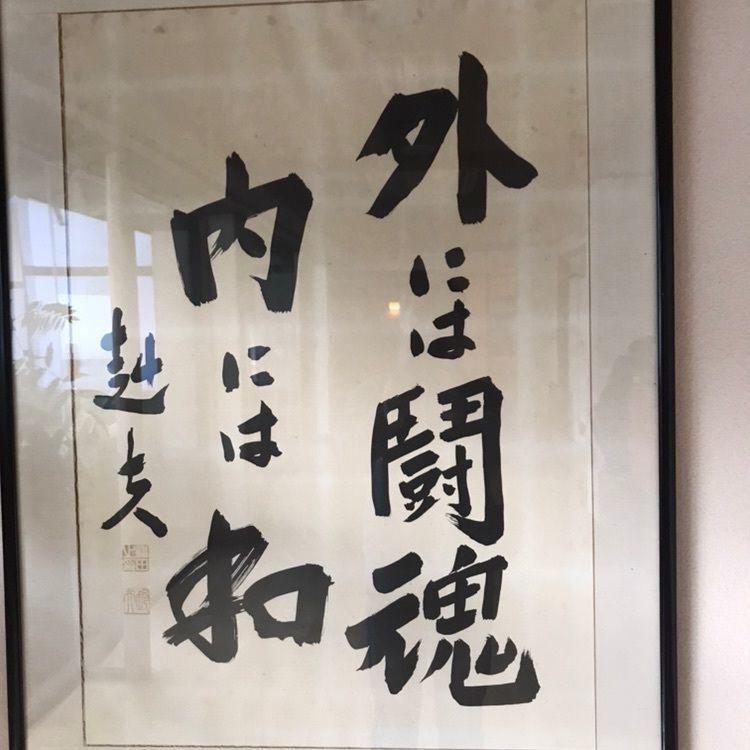 外には闘魂
内には和
赳夫